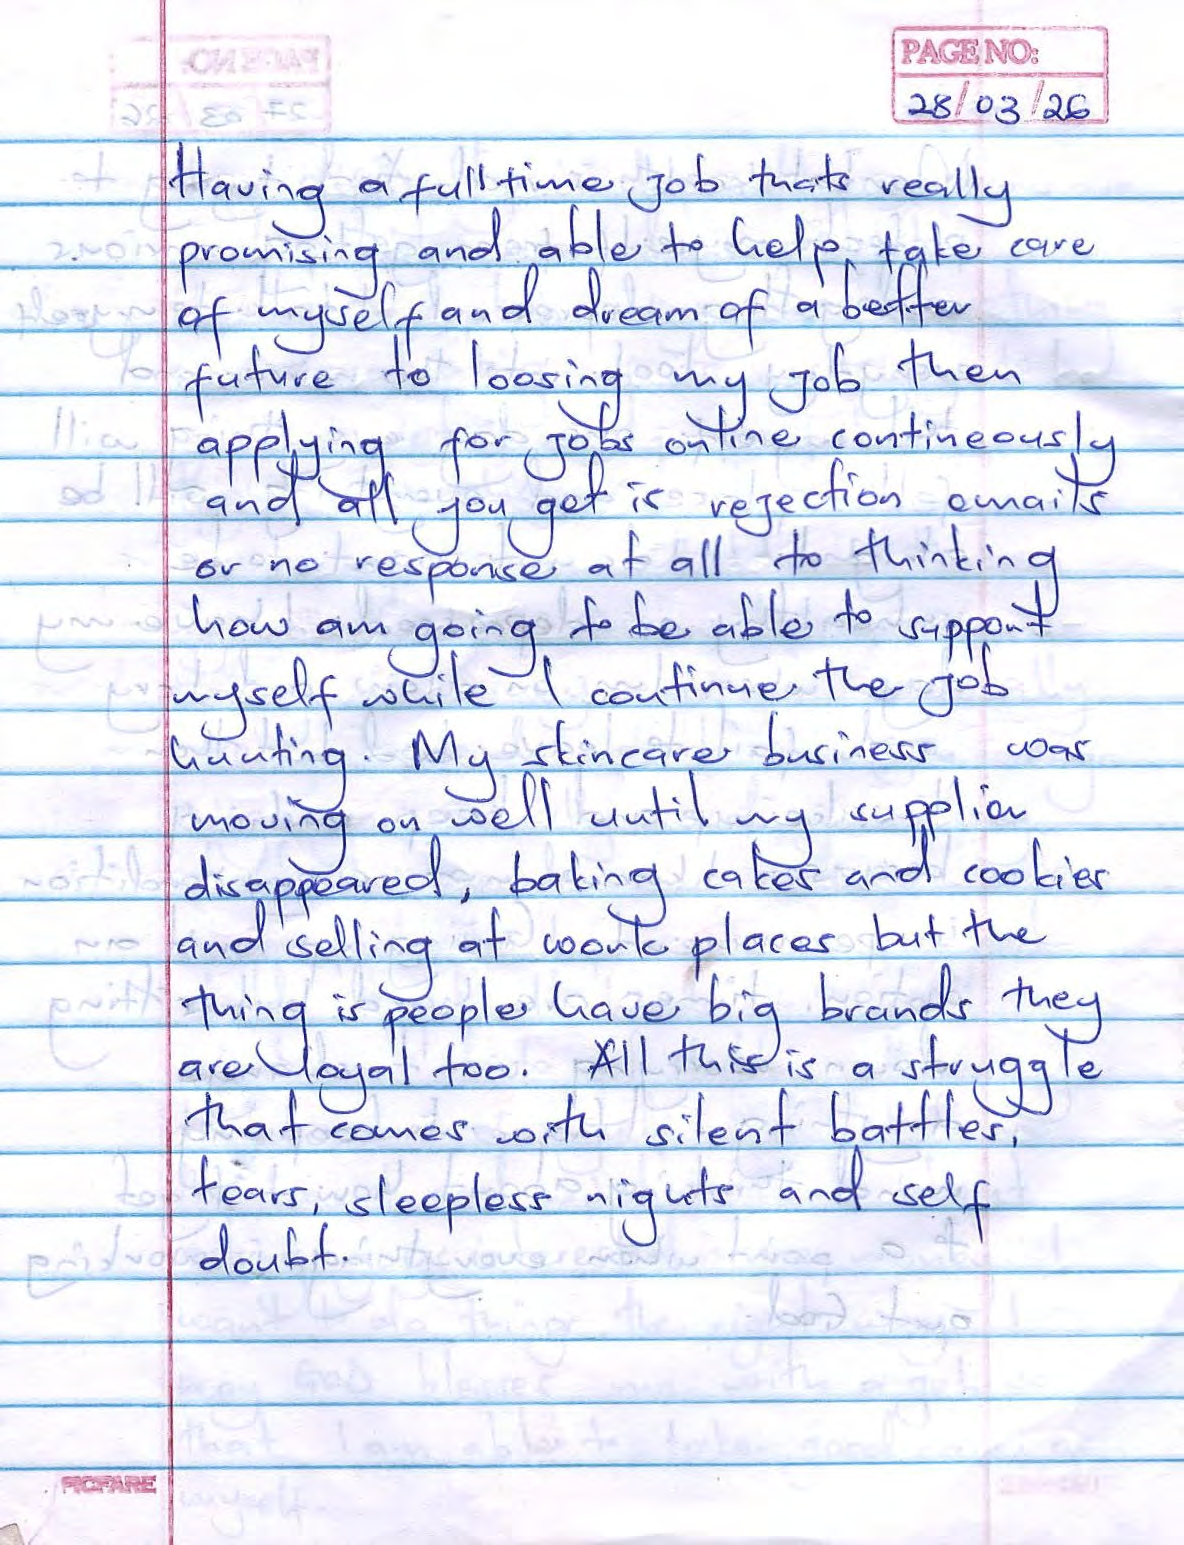 PAGE NO:
28/03/26
Having a full time job thats really
promising and able to help take care
of myself and dream of a better
future to loosing my job then
applying for jobs online contineously
and all you get is rejection emails
or no response at all to thinking
how am going to be able to support
myself while I continue the job
hunting. My skincare business was
moving on well until my supplier
disappeared, baking cakes and cookies
and selling at work places but the
thing is people have big brands they
are loyal too. All this is a struggle
that comes with silent battles,
tears, sleepless nights and self
doubt.
PICFARE